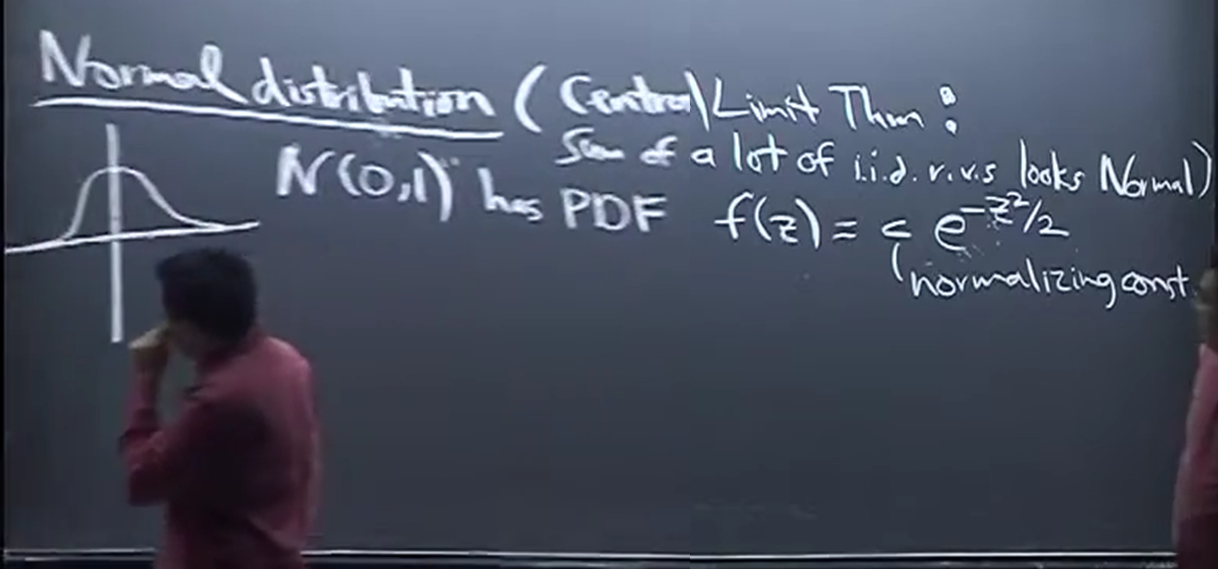 Normal distribution (Central Limit Thm:
Sum of a lot of i.i.d. r.v.s looks Normal)
N(0,1) has PDF f(z) = c e^{-z²/2}
normalizing const.